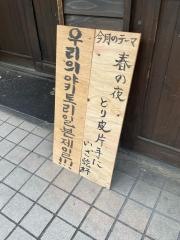 今月のテーマ
春の夜
とり皮片手に
いざ乾杯
우리의 야키토리 일본 제일!!!